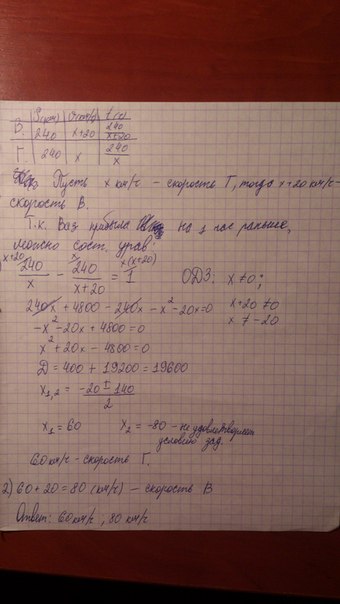 S(км) v(км/ч) t(ч)
В. 240 x+20 240/(x+20)
Г. 240 x 240/x
Пусть x км/ч - скорость Г, тогда x+20 км/ч -
скорость В.
Т.к. Ваз прибыла на 1 час раньше,
можно сост. урав:
240/x - 240/(x+20) = 1 ОДЗ: x ≠ 0;
x+20 ≠ 0
x ≠ -20
240x + 4800 - 240x - x² - 20x = 0
-x² - 20x + 4800 = 0
x² + 20x - 4800 = 0
D = 400 + 19200 = 19600
x₁,₂ = (-20 ± 140)/2
x₁ = 60 x₂ = -80 - не удовлетворяет
условию зад.
60 км/ч - скорость Г.
2) 60 + 20 = 80 (км/ч) - скорость В
Ответ: 60 км/ч, 80 км/ч